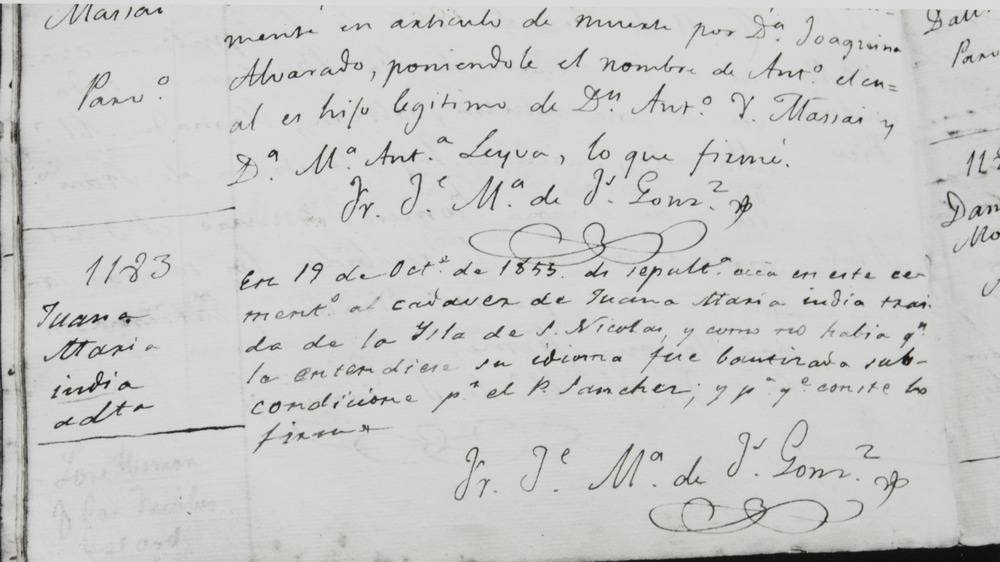 Massai
Parv.º
mente en articulo de muerte por D.ª Joaquina
Alvarado, poniendole el nombre de Ant.º el cu=
al es hijo legitimo de D.n Ant.º V. Massai y
D.ª M.ª Ant.ª Leyva, lo que firmé.
Fr. J.e M.ª de J.s Gonz.z
1183
Juana
Maria
india
adta
En 19 de Oct.e de 1853. di sepult.ª ecca en este ce
ment.º al cadaver de Juana Maria india trai
da de la Ysla de S. Nicolas, y como no habia q.n
la entendiese su idioma fue bautizada sub-
condicione p.r el P. Sanchez; y p.ª q.e conste lo
firma
Fr. J.e M.ª de J.s Gonz.z
Parv
118
Dam
Mo